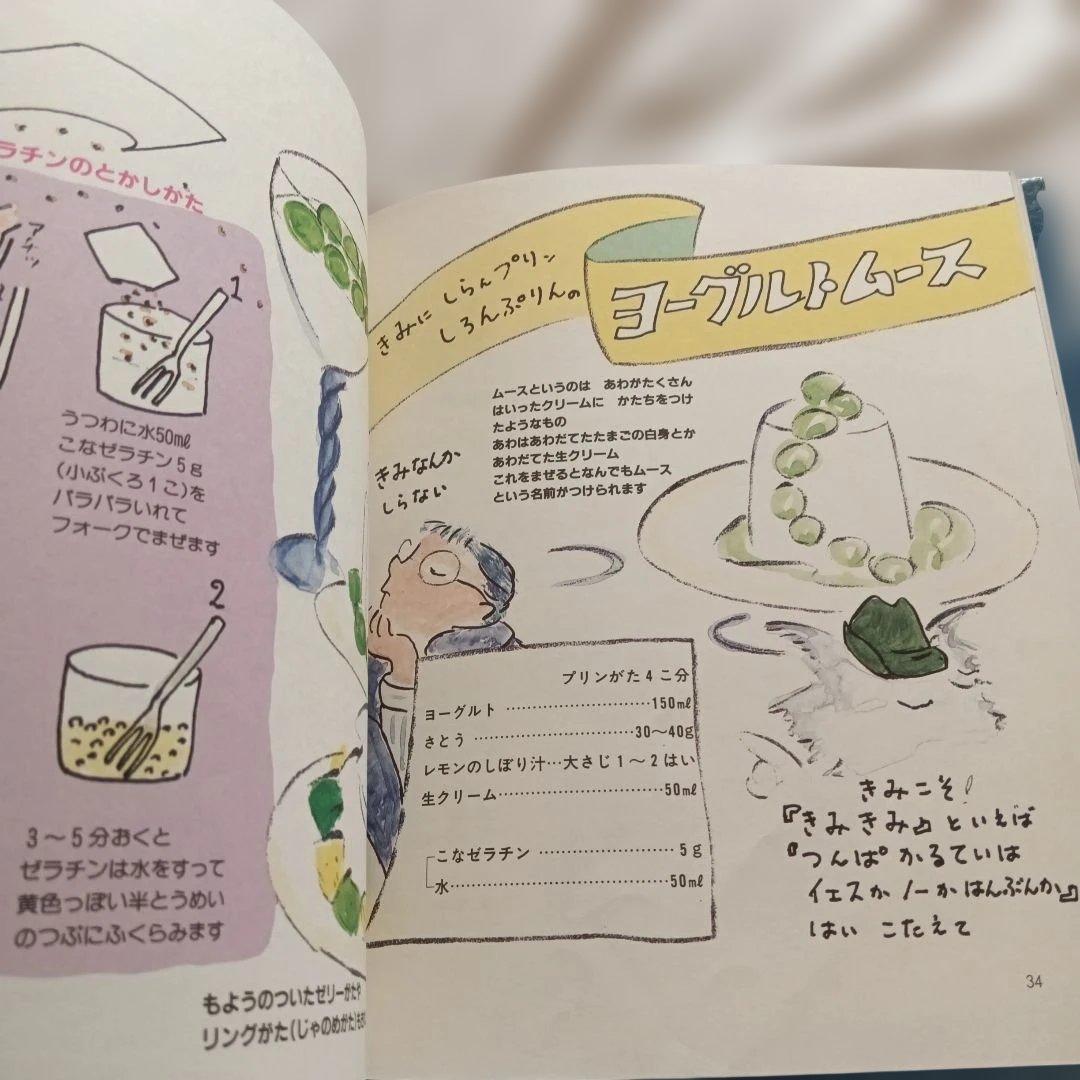 ラチンのとかしかた
アチッ
1
うつわに水50㎖
こなゼラチン5g
(小ぶくろ1こ)を
パラパラいれて
フォークでまぜます
2
3〜5分おくと
ゼラチンは水をすって
黄色っぽい半とうめい
のつぶにふくらみます
もようのついたゼリーがたや
リングがた(じゃのめがた)も
きみに しらんプリン
しろんぷりんの
ヨーグルトムース
ムースというのは あわがたくさん
はいったクリームに かたちをつけ
たようなもの
あわはあわだてたたまごの白身とか
あわだてた生クリーム
これをまぜるとなんでもムース
という名前がつけられます
きみなんか
しらない
プリンがた4こ分
ヨーグルト…………………………150㎖
さとう…………………………30〜40g
レモンのしぼり汁…大さじ1〜2はい
生クリーム…………………………50㎖
こなゼラチン…………………………5g
水…………………………50㎖
きみこそ!
『きみきみ』といえば
『つんぱかるていは
イエスかノーかはんぶんか』
はい こたえて
34